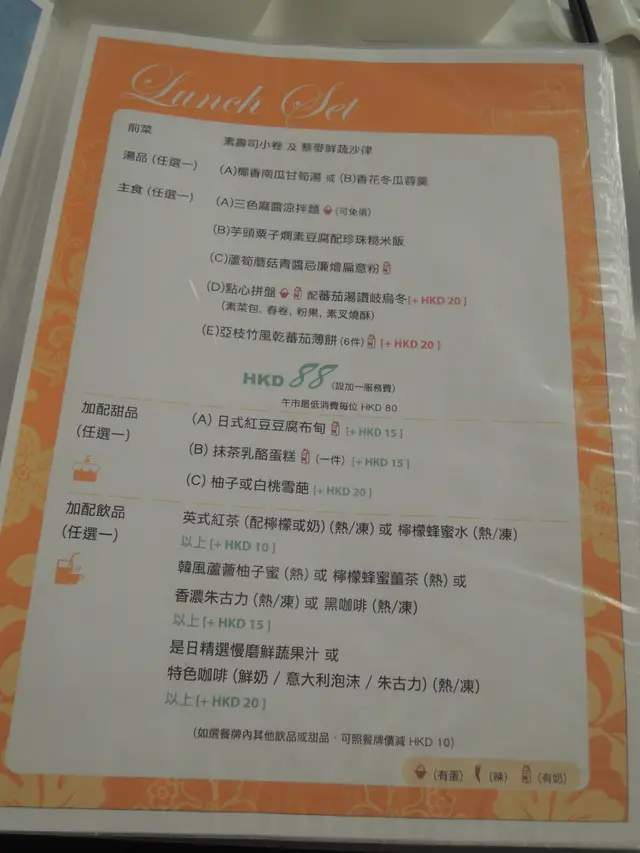 Lunch Set
前菜 素壽司小卷 及 藜麥鮮蔬沙律
湯品 (任選一) (A)椰香南瓜甘筍湯 或 (B)香花冬瓜蓉羹
主食 (任選一) (A)三色麻醬涼拌麵 (可免蛋)
(B)芋頭栗子燜素豆腐配珍珠糙米飯
(C)蘆筍蘑菇青醬忌廉燴扁意粉
(D)點心拼盤 配蕃茄湯讚岐烏冬[+ HKD 20 ]
(素菜包, 春卷, 粉果, 素叉燒酥)
(E)亞枝竹風乾蕃茄薄餅 (6件) [+ HKD 20 ]
HKD 88 (設加一服務費)
午市最低消費每位 HKD 80
加配甜品 (A) 日式紅豆豆腐布甸 [+ HKD 15 ]
(任選一) (B) 抹茶乳酪蛋糕 (一件) [+ HKD 15 ]
(C) 柚子或白桃雪葩 [+ HKD 20 ]
加配飲品 英式紅茶 (配檸檬或奶) (熱/凍) 或 檸檬蜂蜜水 (熱/凍)
(任選一) 以上 [+ HKD 10 ]
韓風蘆薈柚子蜜 (熱) 或 檸檬蜂蜜薑茶 (熱) 或
香濃朱古力 (熱/凍) 或 黑咖啡 (熱/凍)
以上 [+ HKD 15 ]
是日精選慢磨鮮蔬果汁 或
特色咖啡 (鮮奶 / 意大利泡沫 / 朱古力) (熱/凍)
以上 [+ HKD 20 ]
(如選餐牌內其他飲品或甜品，可照餐牌價減 HKD 10)
(有蛋) (辣) (有奶)